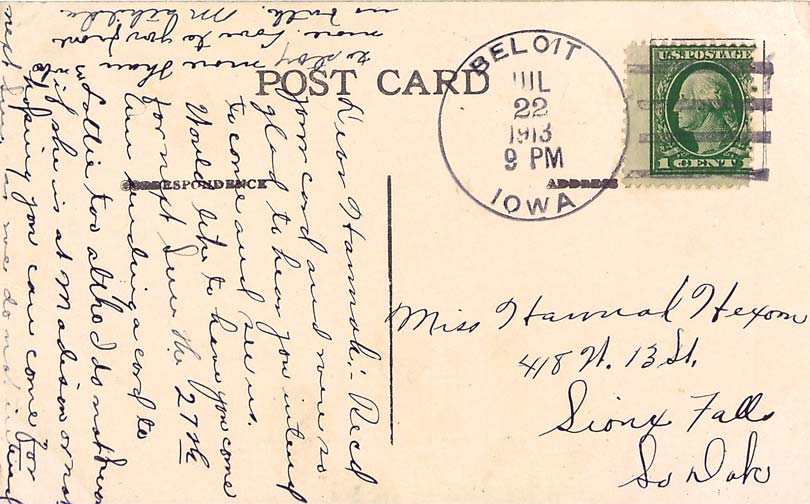 POST CARD
CORRESPONDENCE
ADDRESS
BELOIT
JUL
22
1913
9 PM
IOWA
U.S. POSTAGE
1 CENT
Miss Hannah Hexom
418 N. 13 St.
Sioux Falls
So Dak
Dear Hannah:- Recd
your card and were so
glad to hear you intend
to come and see us.
Would like to have you come
for next Sun the 27th
Am sending a card to
Lottie too altho I do not know
if she is at Madison or not
hoping you can come for
next Sun as we do not intend
to stay more than
more. Love to you from
us both. Mathilda